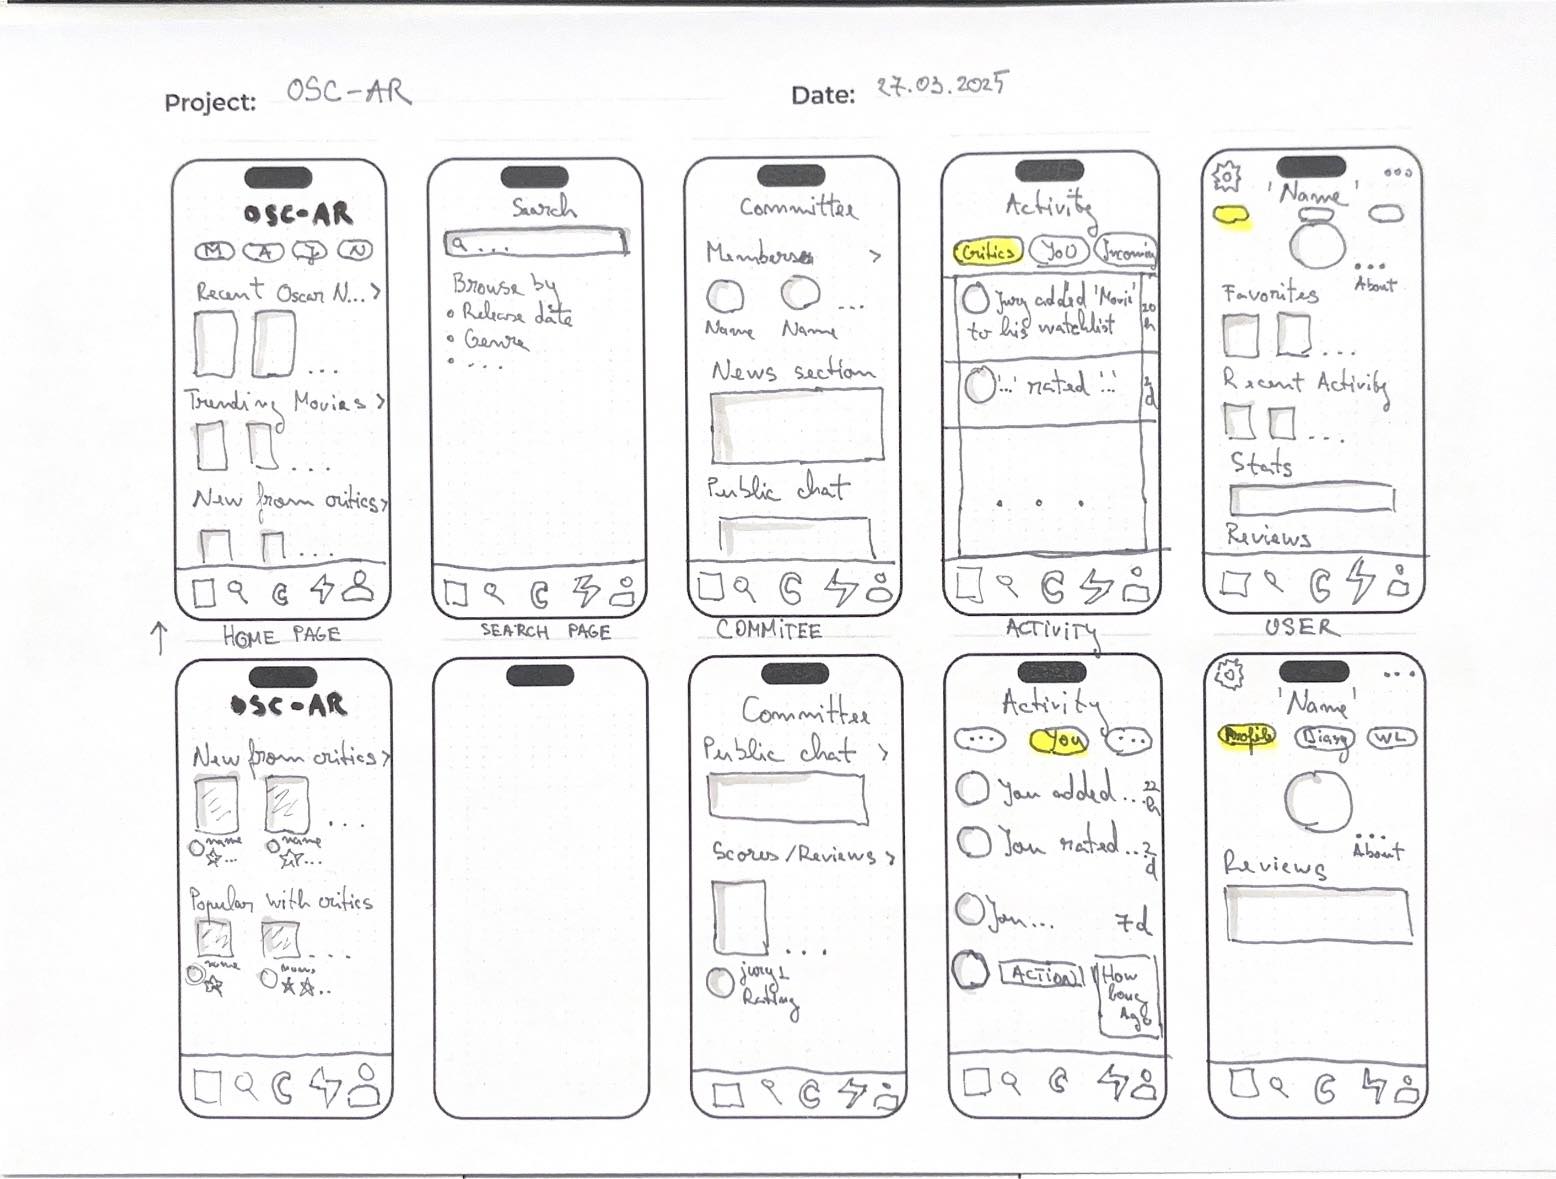 Project: OSC-AR
Date: 27.03.2025
OSC-AR
M A J N
Recent Oscar N...>
...
Trending Movies >
...
New from critics>
...
HOME PAGE
Search
...
Browse by
Release date
Genre
...
SEARCH PAGE
Committee
Members >
Name Name ...
News section
Public chat
COMMITEE
Activity
Critics YoU Incoming
Jury added 'Movie'
to his watchlist
20 h
'...' rated '...'
2 d
. . .
ACTIVITY
'Name'
...
About
Favorites
...
Recent Activity
...
Stats
Reviews
USER
OSC-AR
New from critics>
...
name name
... ...
Popular with critics
...
name name
..
Committee
Public chat >
Scores/Reviews >
...
jury 1
Rating
Activity
... You ...
You added... 22 h
You rated... 2 d
You... 7d
ACTION How long Ago
...
'Name'
Profile Diary WL
...
About
Reviews